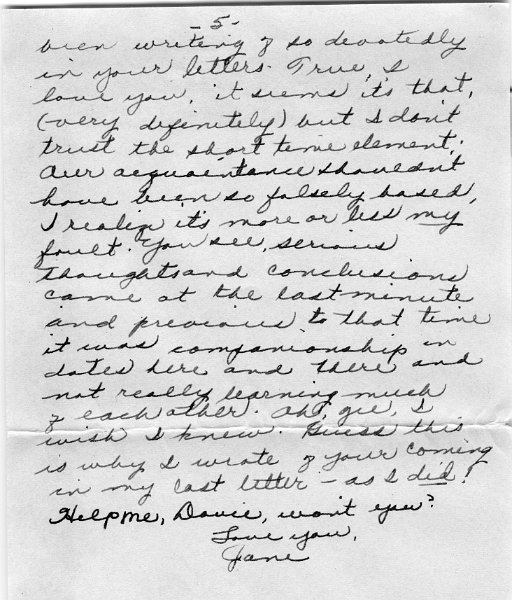 - 5 -
been writing of so devotedly
in your letters. True, I
love you, it seems it's that,
(-very definitely) but I don't
trust the short time element.
Our acquaintance shouldn't
have been so falsely based,
I realize it's more or less my
fault. You see, serious
thoughts and conclusions
came at the last minute
and previous to that time
it was companionship in
dates here and there and
not really learning much
of each other. Oh, gee, I
wish I knew. Guess this
is why I wrote of your coming
in my last letter - as I did!
Help me, Davie, won't you?
Love you,
Jane